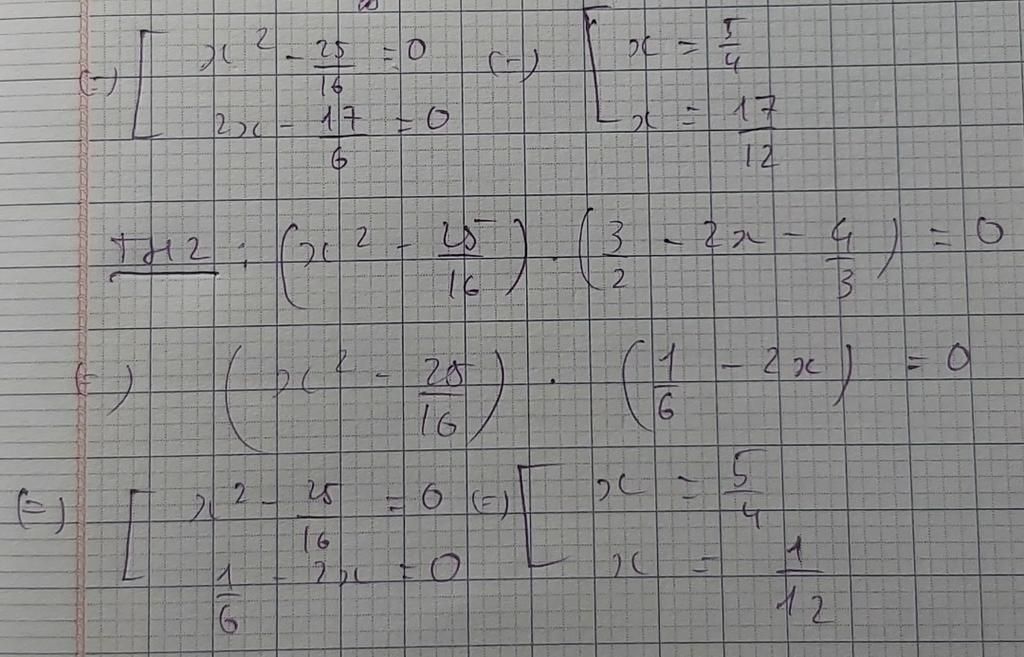 (=) [ x² - 25/16 = 0 (=) [ x = 5/4
2x - 17/6 = 0 x = 17/12
TH2 : (x² - 25/16) . (3/2 - 2x - 4/3) = 0
(=) (x² - 25/16) . (1/6 - 2x) = 0
(=) [ x² - 25/16 = 0 (=) [ x = 5/4
1/6 - 2x = 0 x = 1/12